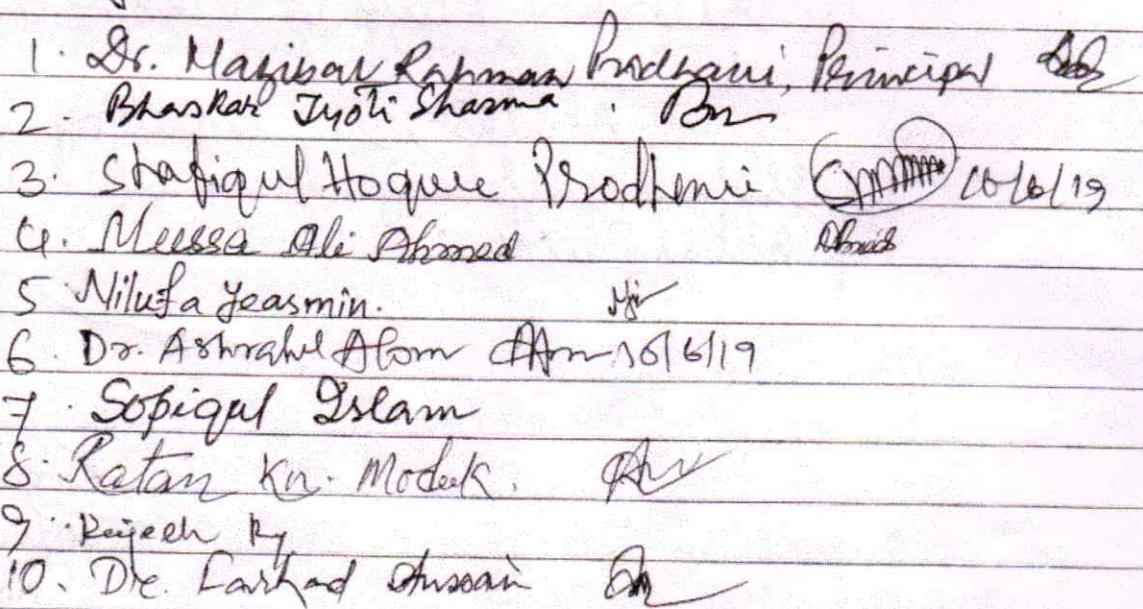 1. Dr. Mazibar Rahman Prodhani, Principal
2. Bhaskar Jyoti Sharma
3. Shafiqul Hoque Prodhani 10/6/19
4. Meussa Ali Ahmed Ahmed
5 Nilufa Yeasmin.
6. Dr. Ashraful Alom 10/6/19
7. Sopiqul Islam
8. Ratan Kr. Modak.
9. Ry
10. Dr. Farhad Hussain